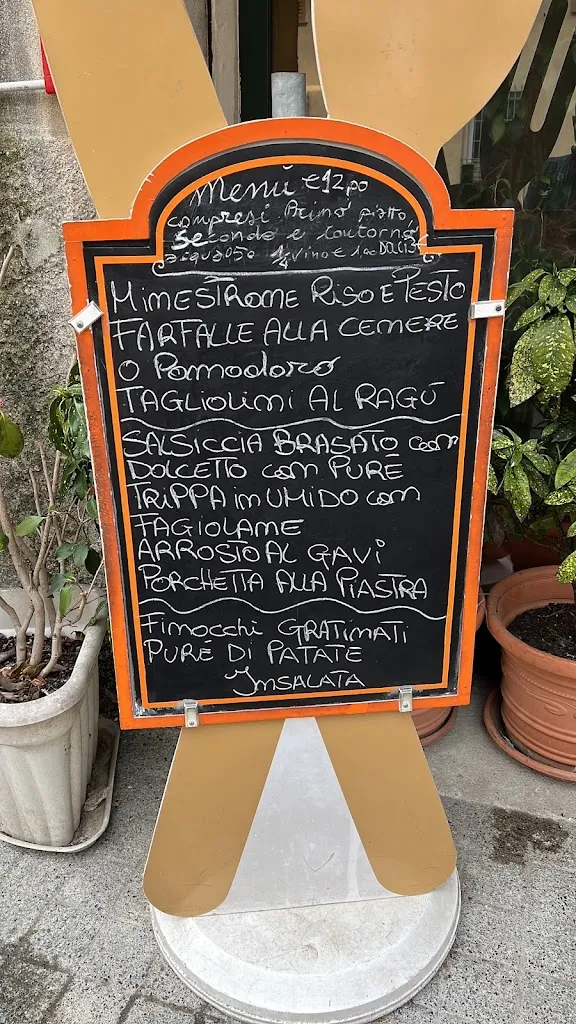 Menù €12,00
compresi Primo piatto,
secondo e contorno
acqua 0,50 1/4 vino € 1,00 DOLCI 3
MINESTRONE RISO E PESTO
FARFALLE ALLA CENERE
O Pomodoro
TAGLIOLINI AL RAGÙ
SALSICCIA BRASATO con
DOLCETTO con PURÈ
TRIPPA in UMIDO con
FAGIOLANE
ARROSTO AL GAVI
PORCHETTA ALLA PIASTRA
Finocchi GRATINATI
PURÈ DI PATATE
INSALATA